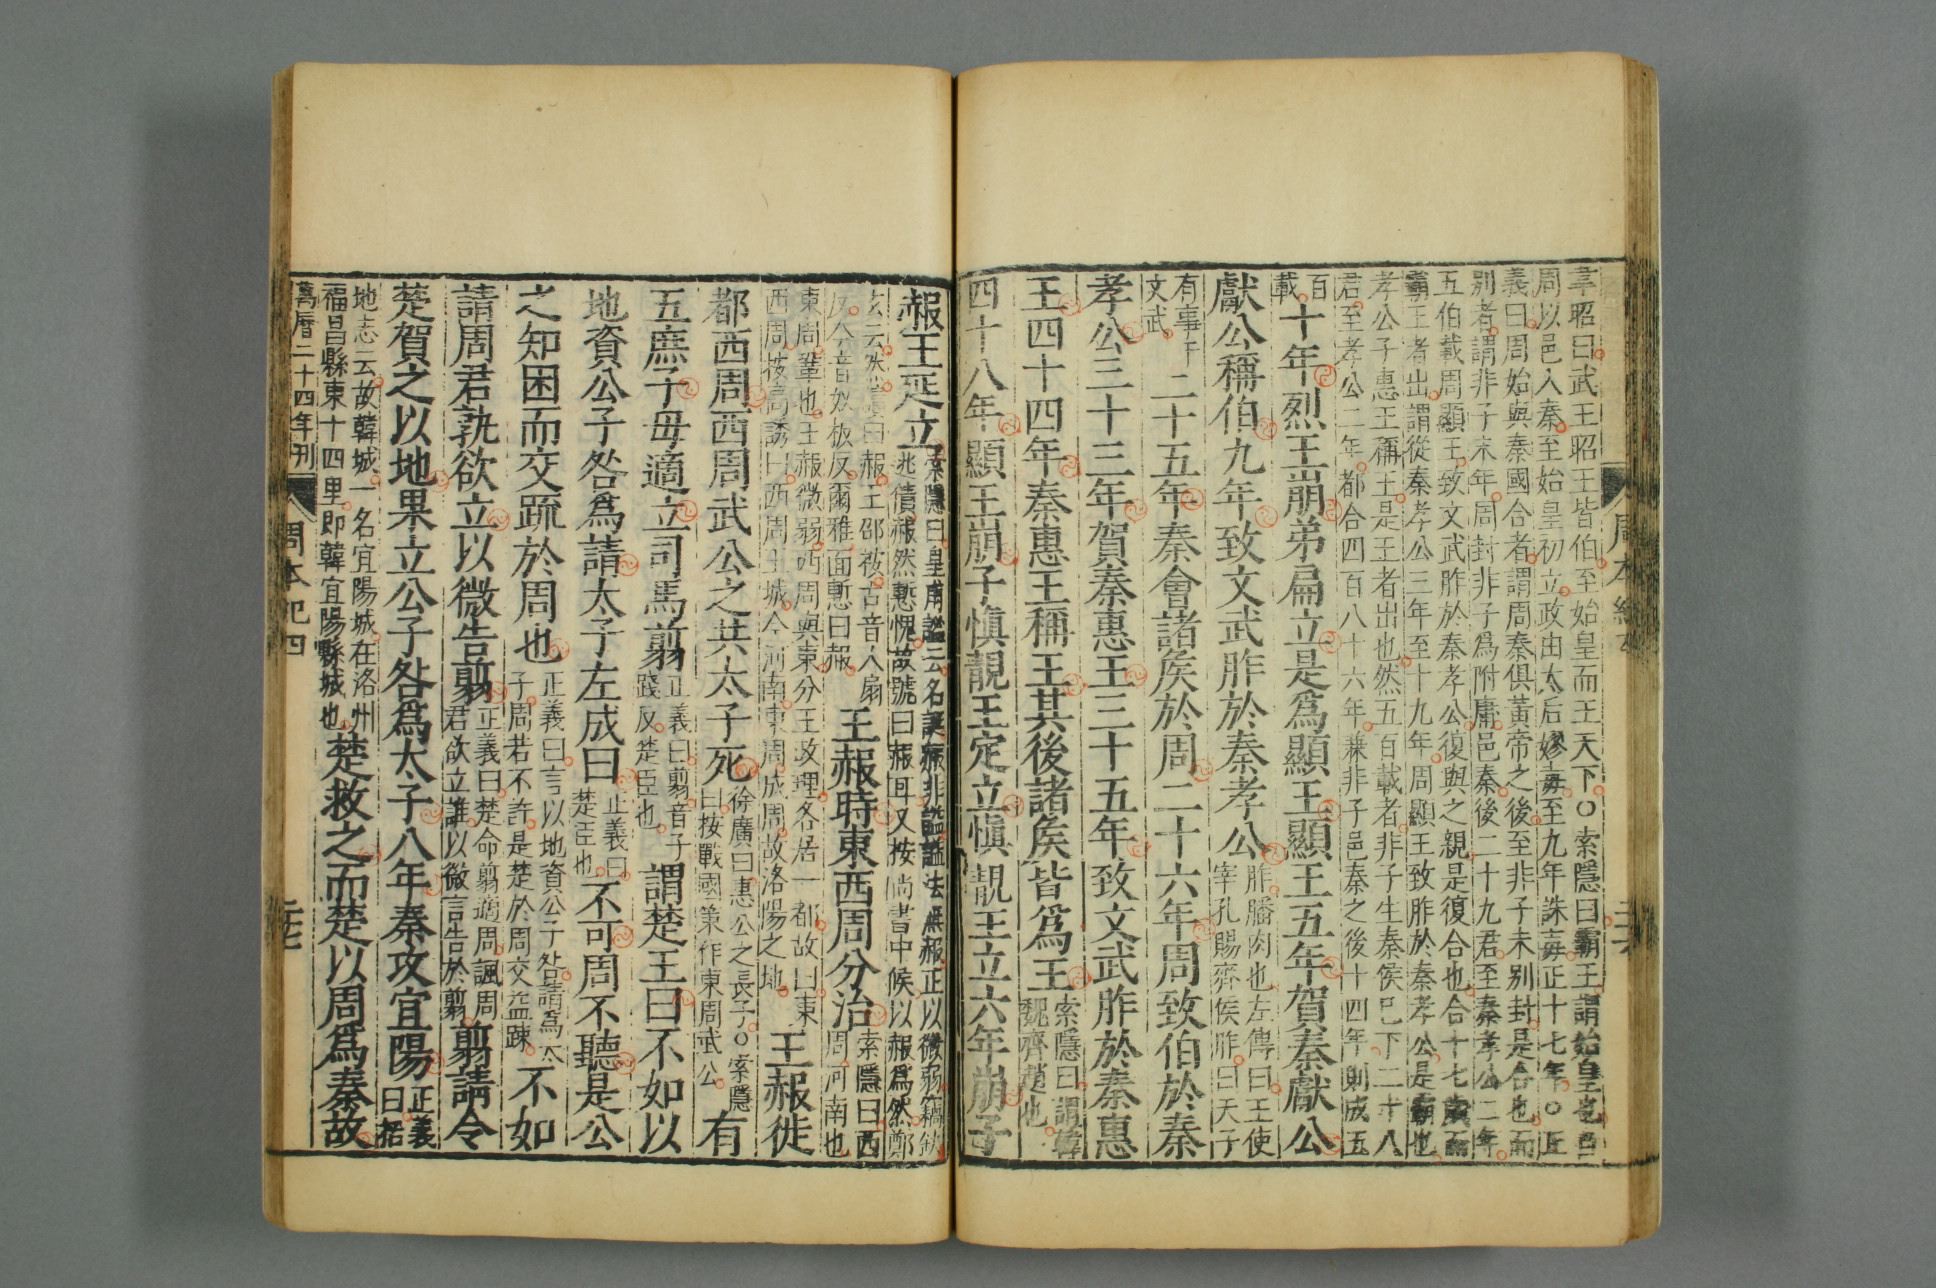 韋昭曰武王昭王皆伯至始皇而王天下○索隱曰霸王謂始皇也自
周以邑入秦至始皇初立政由太后嫪毐至九年誅毐正十七年○正
義曰周始與秦國合者謂周秦俱黃帝之後至非子未别封是合也而
别者謂非子末年周封非子爲附庸邑秦後二十九君至秦孝公二年
五伯載周顯王致文武胙於秦孝公復與之親是復合也合十七歲而
霸王者出謂從秦孝公三年至十九年周顯王致胙於秦孝公是霸也
孝公子惠王稱王是王者出也然五百載者非子生秦侯已下二十八
君至孝公二年都合四百八十六年兼非子邑秦之後十四年則成五
百載十年烈王崩弟扁立是爲顯王顯王五年賀秦獻公
獻公稱伯九年致文武胙於秦孝公胙膰肉也左傳曰王使宰孔賜齊侯胙曰天子
有事于文武二十五年秦會諸矦於周二十六年周致伯於秦
孝公三十三年賀秦惠王三十五年致文武胙於秦惠
王四十四年秦惠王稱王其後諸矦皆爲王索隱曰謂韓魏齊趙也
四十八年顯王崩子慎靚王定立慎靚王立六年崩子
赧王延立索隱曰皇甫謐云名誕赧非謚謚法無赧正以微弱竊鈇逃債赧然慙愧故號曰赧耳又按尚書中候以赧爲然鄭
玄云然讀曰赧王邵按古音人扇反今音奴板反爾雅面慙曰赧王赧時東西周分治索隱曰西周河南也
東周鞏也王赧微弱西周與東分王政理各居一都故曰東西周按高誘曰西周王城今河南東周成周故洛陽之地王赧徙
都西周西周武公之共太子死徐廣曰惠公之長子○索隱曰按戰國策作東周武公有
五庶子毋適立司馬翦正義曰翦音子踐反楚臣也謂楚王曰不如以
地資公子咎爲請太子左成曰正義曰楚臣也不可周不聽是公
之知困而交疏於周也正義曰言以地資公子咎請爲太子周若不許是楚於周交益疎不如
請周君孰欲立以微告翦正義曰楚命翦適周諷周君欲立誰以微言告於翦翦請令
楚賀之以地果立公子咎爲太子八年秦攻宜陽正義曰括
地志云故韓城一名宜陽城在洛州福昌縣東十四里即韓宜陽縣城也楚救之而楚以周爲秦故
萬曆二十四年刊
周本紀四
二十七